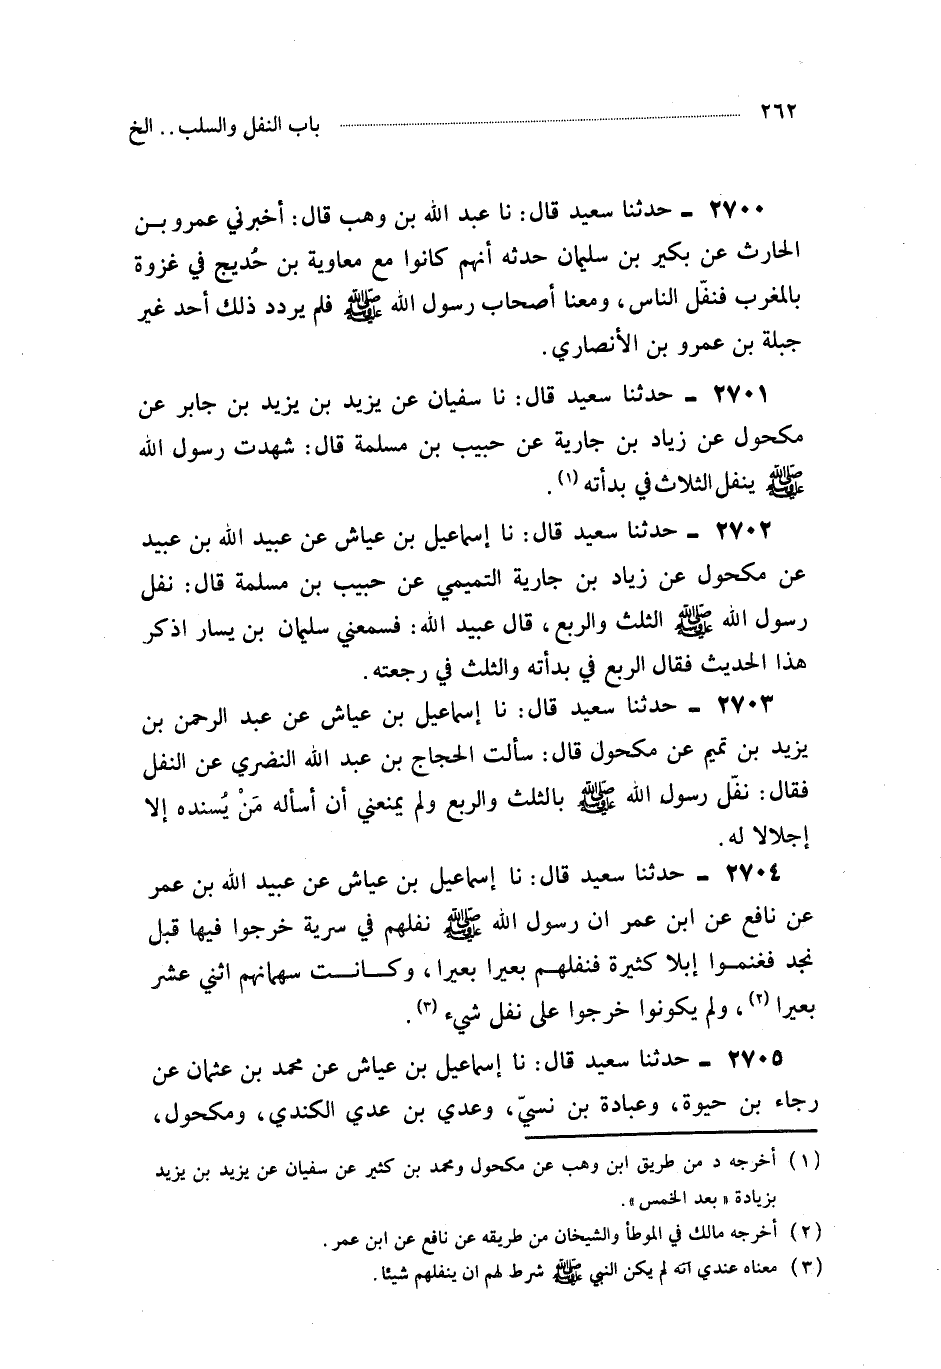 ٢٦٢ باب النفل والسلب . . الخ
٢٧٠٠ ـ حدثنا سعيد قال : نا عبد الله بن وهب قال : أخبرني عمرو بـن
الحارث عن بكير بن سليمان حدثه أنهم كانوا مع معاوية بن حُديج في غزوة
بالمغرب فنفّل الناس ، ومعنا أصحاب رسول الله ﷺ فلم يردد ذلك أحد غير
جبلة بن عمرو بن الأنصاري .
٢٧٠١ ـ حدثنا سعيد قال : نا سفيان عن يزيد بن يزيد بن جابر عن
مكحول عن زياد بن جارية عن حبيب بن مسلمة قال : شهدت رسول الله
ﷺ ينفل الثلاث في بدأته (١) .
٢٧٠٢ ـ حدثنا سعيد قال : نا إسماعيل بن عياش عن عبيد الله بن عبيد
عن مكحول عن زياد بن جارية التميمي عن حبيب بن مسلمة قال : نفل
رسول الله ﷺ الثلث والربع ، قال عبيد الله : فسمعني سليمان بن يسار اذكر
هذا الحديث فقال الربع في بدأته والثلث في رجعته .
٢٧٠٣ ـ حدثنا سعيد قال : نا إسماعيل بن عياش عن عبد الرحمن بن
يزيد بن تميم عن مكحول قال : سألت الحجاج بن عبد الله النضري عن النفل
فقال : نفّل رسول الله ﷺ بالثلث والربع ولم يمنعني أن أسأله مَنْ يُسنده إلا
إجلالا له .
٢٧٠٤ ـ حدثنا سعيد قال : نا إسماعيل بن عياش عن عبيد الله بن عمر
عن نافع عن ابن عمر ان رسول الله ﷺ نفلهم في سرية خرجوا فيها قبل
نجد فغنمـوا إبلا كثيرة فنفلهـم بعيرا بعيرا ، وكـانـت سهمانهم اثني عشر
بعيرا (٢) ، ولم يكونوا خرجوا على نفل شيء (٣) .
٢٧٠٥ ـ حدثنا سعيد قال : نا إسماعيل بن عياش عن محمد بن عثمان عن
رجاء بن حيوة ، وعبادة بن نسيّ ، وعدي بن عدي الكندي ، ومكحول ،
(١) أخرجه د من طريق ابن وهب عن مكحول ومحمد بن كثير عن سفيان عن يزيد بن يزيد
بزيادة « بعد الخمس » .
(٢) أخرجه مالك في الموطأ والشيخان من طريقه عن نافع عن ابن عمر .
(٣) معناه عندي انه لم يكن النبي ﷺ شرط لهم ان ينفلهم شيئا .